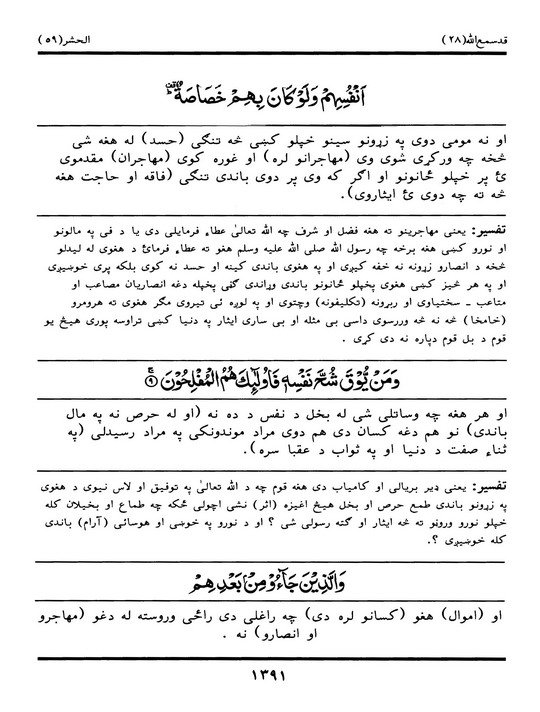 قدسمع الله (٢٨)
الحشر (٥٩)
اَنْفُسِهِمْ وَلَوْ كَانَ بِهِمْ خَصَاصَةٌ
او نه مومی دوی په زړونو سینو خپلو کښی څه تنګی (حسد) له هغه شی
څخه چه ورکړی شوی وی (مهاجرانو لره) او غوره کوی (مهاجران) مقدموی
ئ پر خپلو ځانونو او اگر که وی پر دوی باندی تنګی (فاقه او حاجت هغه
څه ته چه دوی ئ ایثاروی).
تفسیر: یعنی مهاجرینو ته هغه فضل او شرف چه الله تعالیٰ عطاء فرمایلی دی یا د فی په مالونو
او نورو کښی هغه برخه چه رسول الله صلی الله علیه وسلم هغو ته عطاء فرمائ د هغوی له لیدلو
څخه د انصارو زړونه نه خفه کیږی او په هغوی باندی کینه او حسد نه کوی بلکه پری خوښیږی
او په هر څیز کښی هغوی پخپلو ځانونو باندی وړاندی ګڼی پخپله دغه انصاریان مصاعب او
متاعب ـ سختیاوی او ربړونه (تکلیفونه) وچتوی او په لوږه ئی تیروی مگر هغوی ته هرومرو
(خامخا) څه نه څه وررسوی داسی بی مثله او بی ساری ایثار په دنیا کښی تراوسه پوری هیڅ یو
قوم د بل قوم دپاره نه دی کړی.
وَمَنْ يُّوْقَ شُحَّ نَفْسِهٖ فَاُولٰٓئِكَ هُمُ الْمُفْلِحُوْنَ ۹
او هر هغه چه وساتلی شی له بخل د نفس د ده نه (او له حرص نه په مال
باندی) نو هم دغه کسان دی هم دوی مراد موندونکی په مراد رسیدلی (په
ثناء صفت د دنیا او په ثواب د عقبا سره).
تفسیر: یعنی ډیر بریالی او کامیاب دی هغه قوم چه د الله تعالیٰ په توفیق او لاس نیوی د هغوی
په زړونو باندی طمع حرص او بخل هیڅ اغیزه (اثر) نشی اچولی ځکه چه طماع او بخیلان کله
خپلو نورو وروڼو ته څه ایثار او ګټه رسولی شی ؟ او د نورو په خوښی او هوسائی (آرام) باندی
کله خوښیږی ؟.
وَالَّذِيْنَ جَآءُوْ مِنْۢ بَعْدِهِمْ
او (اموال) هغو (کسانو لره دی) چه راغلی دی راځی وروسته له دغو (مهاجرو
او انصارو) نه .
۱۳۹۱